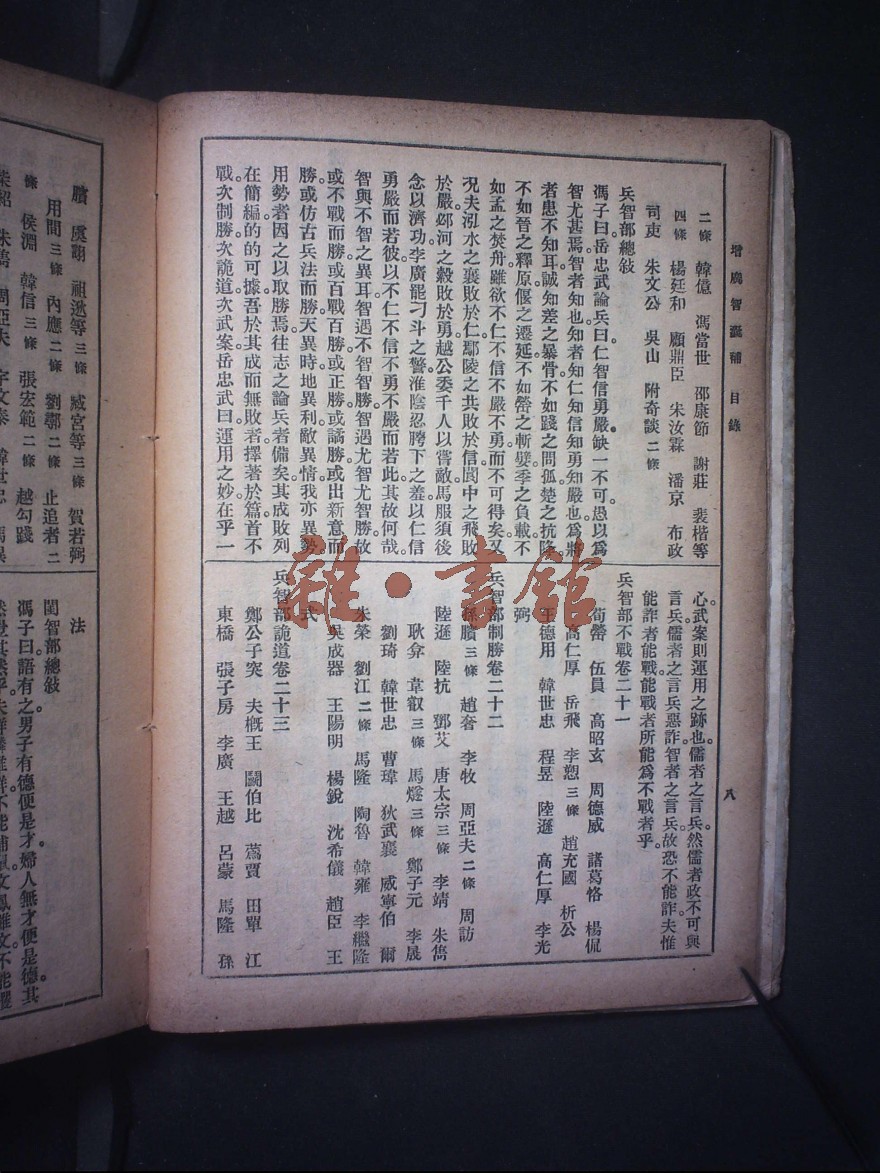 增廣智囊補 目錄
八
二條 韓億 馮當世 邵康節 謝莊 裴楷等
四條 楊廷和 顧鼎臣 朱汝霖 潘京 布政
司吏 朱文公 吳山 附奇談二條
兵智部總敍
馮子曰岳忠武論兵曰仁智信勇嚴缺一不可。愚以爲
智尤甚焉智者知也知者知仁知信知勇知嚴也。爲將
者患不知耳誠知差之暴骨不如踐之問孤楚之抗隆。
不如晉之釋原偃之遷延不如罃之斬嬖季之負載不
如孟之焚舟雖欲不仁不信不嚴不勇而不可得矣又
況夫泓水之襄敗於仁鄢陵之共敗於信閬中之飛敗
於嚴邲河之縠敗於勇。越公委千人以嘗敵馬服須後
念以濟功。李廣罷刁斗之警淮陰忍胯下之羞。以仁信
勇嚴而若彼以不仁不信不勇不嚴而若此其故何哉。
智與不智之異耳智遇不智智勝智遇尤智尤智勝故
或不戰而勝或百戰百勝或正勝或譎勝或出新意而
勝。或仿古兵法而勝。天異時地異利。敵異情我亦異勢。
用勢者因之以取勝焉往志之論兵者備矣其成敗列
在簡編的的可據吾於其成而無敗者擇著於篇首不
戰次制勝次詭道次武案岳忠武曰。運用之妙在乎一
心。武案則運用之跡也。儒者之言兵。然儒者政不可與
言兵儒者之言兵惡詐智者之言兵故恐不能詐夫惟
能詐者能戰能戰者所能爲不戰者乎。
兵智部不戰卷二十一
荀罃 伍員 高昭玄 周德威 諸葛恪 楊侃
高仁厚 岳飛 李愬三條 趙充國 析公
王德用 韓世忠 程昱 陸遜 高仁厚 李光
弼
兵智部制勝卷二十二
孫臏三條 趙奢 李牧 周亞夫二條 周訪
陸遜 陸抗 鄧艾 唐太宗三條 李靖 朱雋
耿弇 韋叡三條 馬燧三條 鄭子元 李晟
劉琦 韓世忠 曹瑋 狄武襄 威寧伯 爾
朱榮 劉江二條 馬隆 陶魯 韓雍 李繼隆
吳成器 王陽明 楊銳 沈希儀 趙臣 王
式
兵智部詭道卷二十三
鄭公子突 夫槪王 鬬伯比 蔿賈 田單 江
東橋 張子房 李廣 王越 呂蒙 馬隆 孫
臏 虞詡 祖逖等三條 臧宮等三條 賀若弼
用間三條 內應二條 劉鄩二條 止追者二
條 侯淵 韓信三條 張宏範二條 越勾踐
柴紹 朱雋 周亞夫 宇文泰 韓世忠
法
閨智部總敍
馮子曰語有之男子有德便是才。婦人無才便是德其
雜·書館